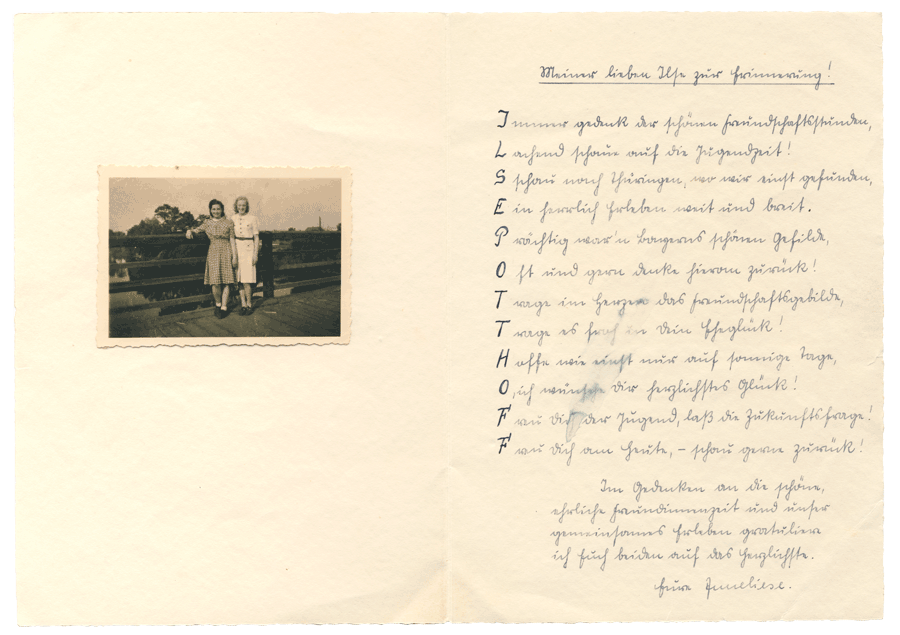 Meiner lieben Ilse zur Erinnerung!
Immer gedenk der schönen Freundschaftsstunden,
Lachend schaue auf die Jugendzeit!
Schau nach Thüringen, wo wir einst gefunden,
Ein herrlich Erleben weit und breit.
Prächtig war'n Bayerns schönen Gefilde,
Oft und gern denke hieran zurück!
Trage im Herzen das Freundschaftsgebilde,
Trage es froh in Dein Eheglück!
Hoffe wie einst nur auf sonnige Tage,
O, ich wünsche Dir herzlichstes Glück!
Freu Dich der Jugend, laß die Zukunftsfrage!
Freu Dich am Heute, – schau gerne zurück!
Im Gedenken an die schöne,
ehrliche Freundinnenzeit und unser
gemeinsames Erleben gratuliere
ich Euch beiden auf das Herzlichste.
Eure Anneliese.